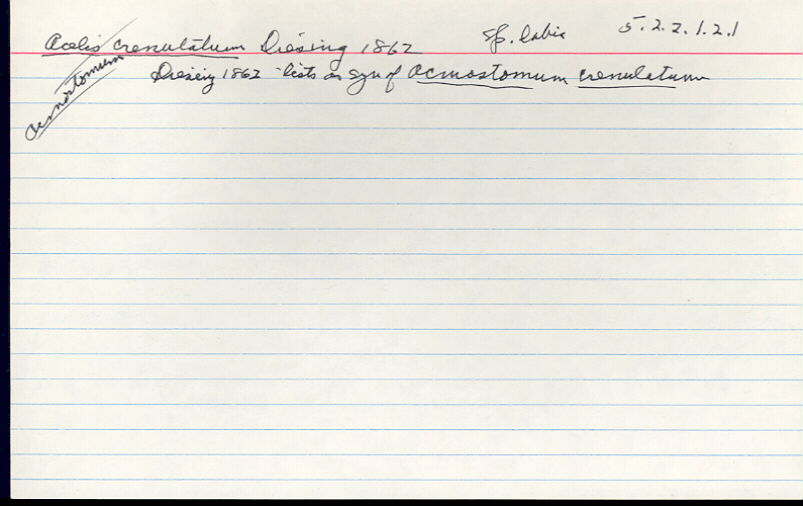 Acelis crenulatum Diesing 1862 sp. labia 5.2.2.1.2.1
Diesing 1862 lists as syn of Acmostomum crenulatum
Acmostomum